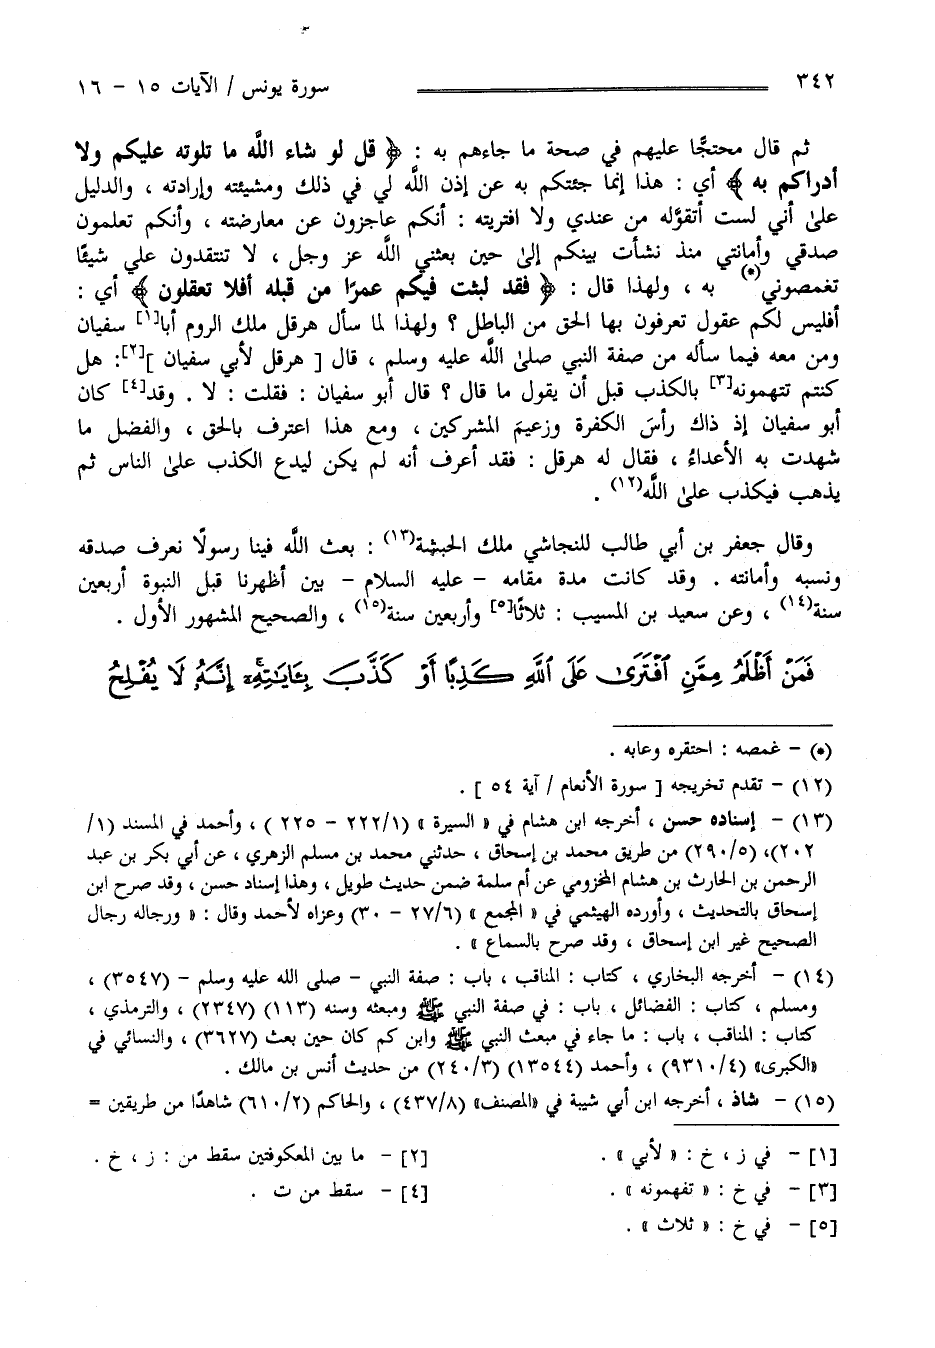 ٣٤٢ سورة يونس / الآيات ١٥ - ١٦
ثم قال محتجًّا عليهم في صحة ما جاءهم به : ﴿ قل لو شاء اللَّه ما تلوته عليكم ولا
أدراكم به ﴾ أي : هذا إنما جئتكم به عن إذن اللَّه لي في ذلك ومشيئته وإرادته ، والدليل
علىٰ أني لست أتقوَّله من عندي ولا افتريته : أنكم عاجزون عن معارضته ، وأنكم تعلمون
صدقي وأمانتي منذ نشأت بينكم إلىٰ حين بعثني اللَّه عز وجل ، لا تنتقدون علي شيئًا
تغمصوني(*) به ، ولهذا قال : ﴿ فقد لبثت فيكم عمرًا من قبله أفلا تعقلون ﴾ أي :
أفليس لكم عقول تعرفون بها الحق من الباطل ؟ ولهذا لما سأل هرقل ملك الروم أبا[١] سفيان
ومن معه فيما سأله من صفة النبي صلىٰ اللَّه عليه وسلم ، قال [ هرقل لأبي سفيان ][٢]: هل
كنتم تتهمونه[٣] بالكذب قبل أن يقول ما قال ؟ قال أبو سفيان : فقلت : لا . وقد[٤] كان
أبو سفيان إذ ذاك رأسَ الكفرة وزعيمَ المشركين ، ومع هذا اعترف بالحق ، والفضل ما
شهدت به الأعداءُ ، فقال له هرقل : فقد أعرف أنه لم يكن ليدع الكذب علىٰ الناس ثم
يذهب فيكذب علىٰ اللَّه(١٢) .
وقال جعفر بن أبي طالب للنجاشي ملك الحبشة(١٣) : بعث اللَّه فينا رسولًا نعرف صدقه
ونسبه وأمانته . وقد كانت مدة مقامه - عليه السلام - بين أظهرنا قبل النبوة أربعين
سنة(١٤) ، وعن سعيد بن المسيب : ثلاثًا[٥] وأربعين سنة(١٥) ، والصحيح المشهور الأول .
فَمَنْ أَظْلَمُ مِمَّنِ ٱفْتَرَىٰ عَلَى ٱللَّهِ كَذِبًا أَوْ كَذَّبَ بِـَٔايَـٰتِهِۦٓ ۚ إِنَّهُۥ لَا يُفْلِحُ
(*) - غمصه : احتقره وعابه .
(١٢) - تقدم تخريجه [ سورة الأنعام / آية ٥٤ ] .
(١٣) - إسناده حسن ، أخرجه ابن هشام في « السيرة » (٢٢٢/١ - ٢٢٥ ) ، وأحمد في المسند (١/
٢٠٢)، (٢٩٠/٥) من طريق محمد بن إسحاق ، حدثني محمد بن مسلم الزهري ، عن أبي بكر بن عبد
الرحمن بن الحارث بن هشام المخزومي عن أم سلمة ضمن حديث طويل ، وهذا إسناد حسن ، وقد صرح ابن
إسحاق بالتحديث ، وأورده الهيثمي في « المجمع » (٢٧/٦ - ٣٠) وعزاه لأحمد وقال : « ورجاله رجال
الصحيح غير ابن إسحاق ، وقد صرح بالسماع » .
(١٤) - أخرجه البخاري ، كتاب : المناقب ، باب : صفة النبي - صلى الله عليه وسلم - (٣٥٤٧) ،
ومسلم ، كتاب : الفضائل ، باب : في صفة النبي ﷺ ومبعثه وسنه (١١٣) (٢٣٤٧) ، والترمذي ،
كتاب : المناقب ، باب : ما جاء في مبعث النبي ﷺ وابن كم كان حين بعث (٣٦٢٧) ، والنسائي في
«الكبرى» (٩٣١٠/٤) ، وأحمد (١٣٥٤٤) (٢٤٠/٣) من حديث أنس بن مالك .
(١٥) - شاذ ، أخرجه ابن أبي شيبة في «المصنف» (٤٣٧/٨) ، والحاكم (٦١٠/٢) شاهدًا من طريقين =
[١] - في ز ، خ : « لأبي » . [٢] - ما بين المعكوفتين سقط من : ز ، خ .
[٣] - في خ : « تفهمونه » . [٤] - سقط من ت .
[٥] - في خ : « ثلاث » .